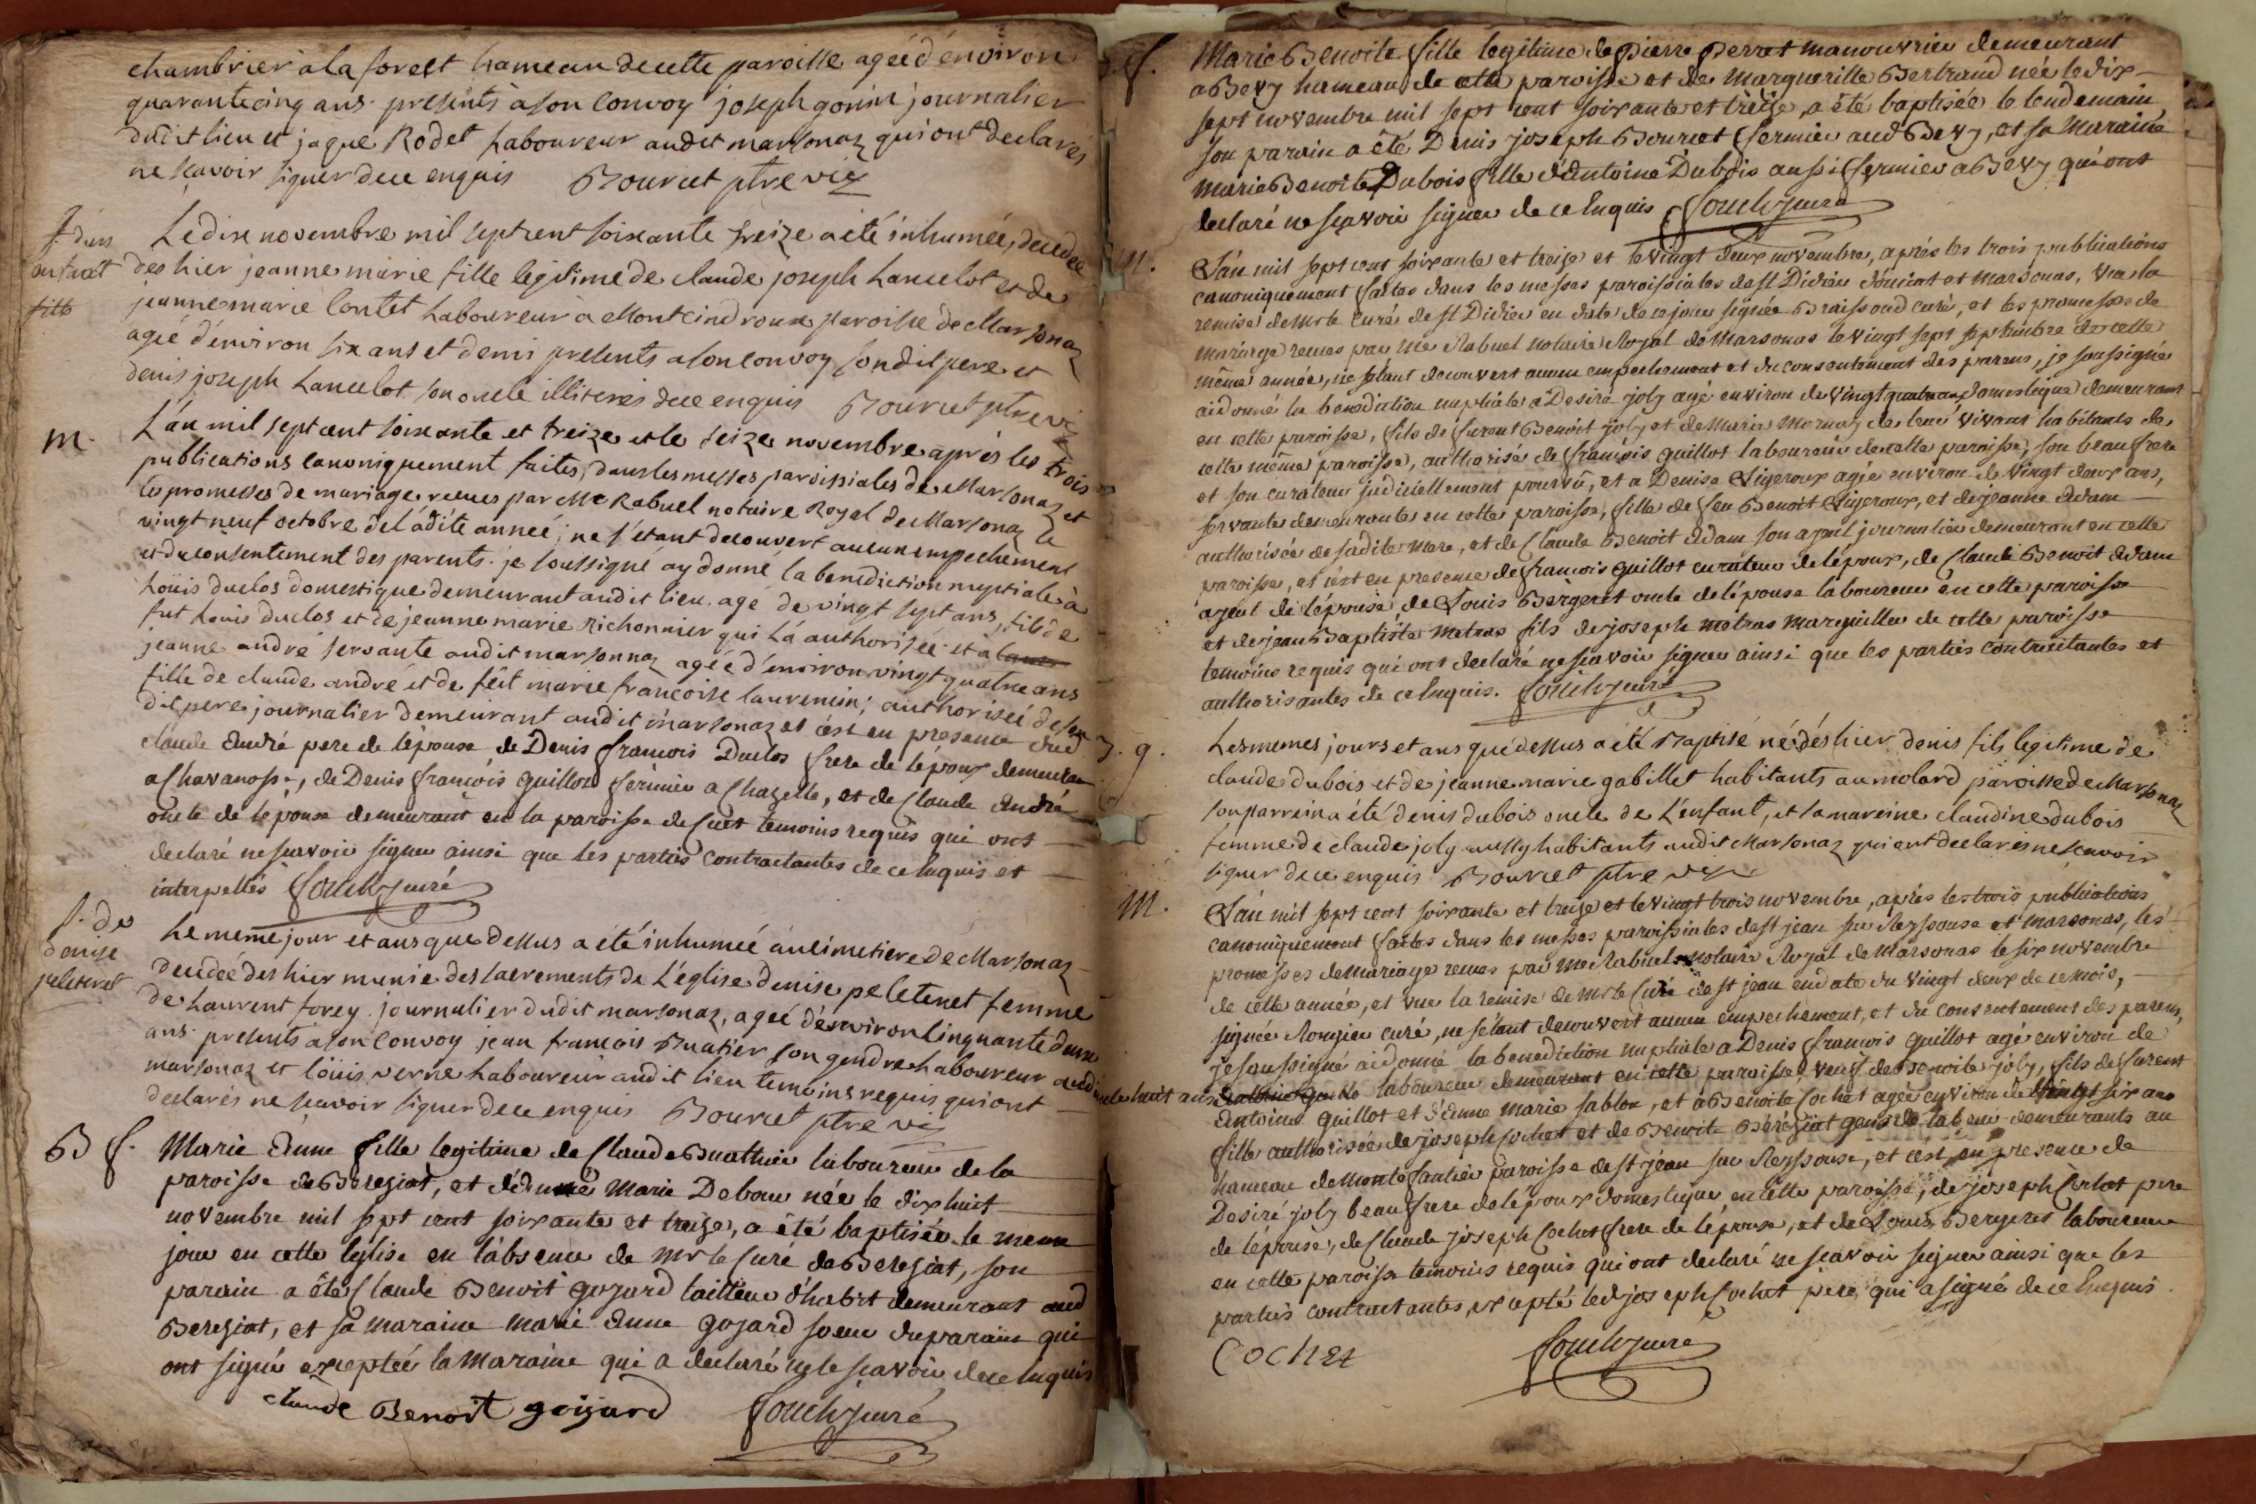 chambrier a la forest hameau de cette paroisse agée d'environ
quarante cinq ans presents a son convoy joseph gorin journalier
dudit lieu et jaque Rodet Laboureur audit marsonaz qui ont declarés
ne scavoir signer de ce enquis Bourcet ptre vic
Le dix novembre mil sept cent soixante treize a été inhumée, decedée
des hier jeanne marie fille legitime de claude joseph Lancelot et de
jeanne marie Contet Laboureur à Montcindroux paroisse de Marsonaz
agé d'environ six ans et demi presents a son convoy son dit pere et
denis joseph Lancelot son oncle illiterés de ce enquis Bourcet ptre vic
m.
L'an mil sept cent soixante et treize et le seize novembre aprés les trois
publications canoniquement faites, dans les messes paroissiales de Marsonaz et
les promesses de mariage reçues par Me Rabuel notaire Royal de Marsonaz le
vingt neuf octobre de la dite année; ne s'étant decouvert aucun empechement
et du consentement des parents. je soussigné ay donné la benediction nuptiale à
Loüis duclos domestique demeurant audit lieu agé de vingt sept ans, fils de
fut Louis duclos et de jeanne marie Richonnier qui L'a authorisée et a
jeanne andré servante audit marsonnaz agée d'environ vingt quatre ans
fille de claude andré et de feüt marie françoise laurencin; authorisée de son
dit pere journalier demeurant audit marsonaz et c'est en presence dud
claude André pere de l'épouse de Denis françois Duclos frere de l'époux demeurant
a Chavanosse, de Denis françois Guillot fermier a Chazelle, et de Claude André
oncle de l'épouse demeurant en la paroisse de Cuet temoins requis qui ont
declaré ne scavoir signer ainsi que les parties contractantes de ce enquis et
interpellés fouch curé
f. de
denise
peletenet
Le meme jour et ans que dessus a été inhumée au cimetiere de Marsonaz
decedée des hier munie des sacrements de L'église denise peletenet femme
de Laurent forey journalier dudit marsonaz, agée d'environ cinquante deux
ans presents a son convoy jean francois Buatier son gendre laboureur audit
marsonaz et loüis verne Laboureur audit lieu temoins requis qui ont
declarés ne scavoir signer de ce enquis Bourcet ptre vic
B f.
Marie Anne fille legitime de Claude Buathier laboureur de la
paroisse de Beresiat, et d'Anne Marie Debouc née le dix huit
novembre mil sept cent soixante et treize, a été baptisée le meme
jour en cette église en l'absence de Mr le Curé de Beresiat, son
parain a été Claude Benoit gozard tailleur d'habit demeurant aud
Beresiat, et sa maraine Marie Anne gozard soeur du parain qui
ont signé exceptée la maraine qui a declaré ne le scavoir de ce enquis
claude Benoit goyard fouch curé
f.
Marie Benoite fille legitime de pierre perret manouvrier demeurant
a Bevy hameau de cette paroisse et de Marguerille Bertrand née le dix
sept novembre mil sept cent soixante et treize, a été baptisée le lendemain
son parain a été Denis joseph Bourcet fermier aud Bevy, et sa Maraine
marie Benoite Dubois fille d'Antoine Dubois aussi fermier a Bevy qui ont
declaré ne scavoir signer de ce enquis fouch curé
m.
L'an mil sept cent soixante et treize et le vingt deux novembre, aprés les trois publications
canoniquement faites dans les messes paroissiales de st Didier d'ouciat et marsonas, vu la
remise de Mr le Curé de st Didier en date de ce jour signée Braissoud curé, et les promesses de
mariage reçues par Me Rabuel notaire Royal de Marsonas le vingt sept septembre de cette
même année, ne s'étant decouvert aucun empechement et du consentement des parens, je soussigné
ai donné la benediction nuptiale a Desiré joly agé environ de vingt quatre ans domestique demeurant
en cette paroisse, fils de furent Benoit joly et de Marie Mornay de leur vivant habitants de
cette même paroisse, authorisé de françois guillot laboureur de cette paroisse, son beau frere
et son curateur judiciellement pourvû, et a Denise Ligeroux agée environ de vingt deux ans,
servante demeurante en cette paroisse, fille de feu Benoit Ligeroux, et de jeanne Adam
authorisée de sadite mere, et de Claude Benoit Adam son ayeul journalier demeurant en cette
paroisse, et c'est en presence de françois guillot curateur de l'époux, de Claude Benoit Adam
ayeul de l'épouse, de Louis Bergeret oncle de l'épouse laboureur en cette paroisse
et de jean Baptiste Metras fils de joseph metras marguiller de cette paroisse
temoins requis qui ont declaré ne scavoir signer ainsi que les parties contractantes et
authorisantes de ce enquis. fouch curé
B. g.
Les memes jours et ans que dessus a été Baptisé né dés hier denis fils legitime de
claude dubois et de jeanne marie gabillet habitants au molard paroisse de Marsonaz
son parrein a été denis dubois oncle de L'enfant, et sa mareine claudine dubois
femme de claude joly aussy habitants audit Marsonaz qui ont declarés ne scavoir
signer de ce enquis Bourcet ptre vic
M.
L'an mil sept cent soixante et treize et le vingt trois novembre, aprés les trois publications
canoniquement faites dans les messes paroissiales de st jean sur Reyssouse et marsonas, les
promesses de mariage reçues par Me Rabuel notaire Royal de Marsonas le six novembre
de cette année, et vu la remise de Mr le Curé de st jean en date du vingt deux de ce mois,
signée Rougier curé, ne s'étant decouvert aucun empechement, et du consentement des parens,
je soussigné ai donné la benediction nuptiale a Denis françois guillot agé environ de
huit ans laboureur demeurant en cette paroisse, veuf de Benoite joly, fils de furent
Antoine guillot et d'Anne Marie sablon, et a Benoite Cochet agée environ de vingt six ans
fille authorisée de joseph Cochet et de Benoite Béréziat gens de labeur demeurants au
hameau de Montefantier paroisse de st jean sur Reyssouse, et c'est en presence de
Desiré joly beau frere de l'époux domestique en cette paroisse, de joseph Cochet pere
de l'épouse, de Claude joseph Cochet frere de l'épouse, et de Louis Bergeret laboureur
en cette paroisse temoins requis qui ont declaré ne scavoir signer ainsi que les
parties contractantes, excepté led joseph Cochet pere qui a signé de ce enquis.
COCHET fouch curé